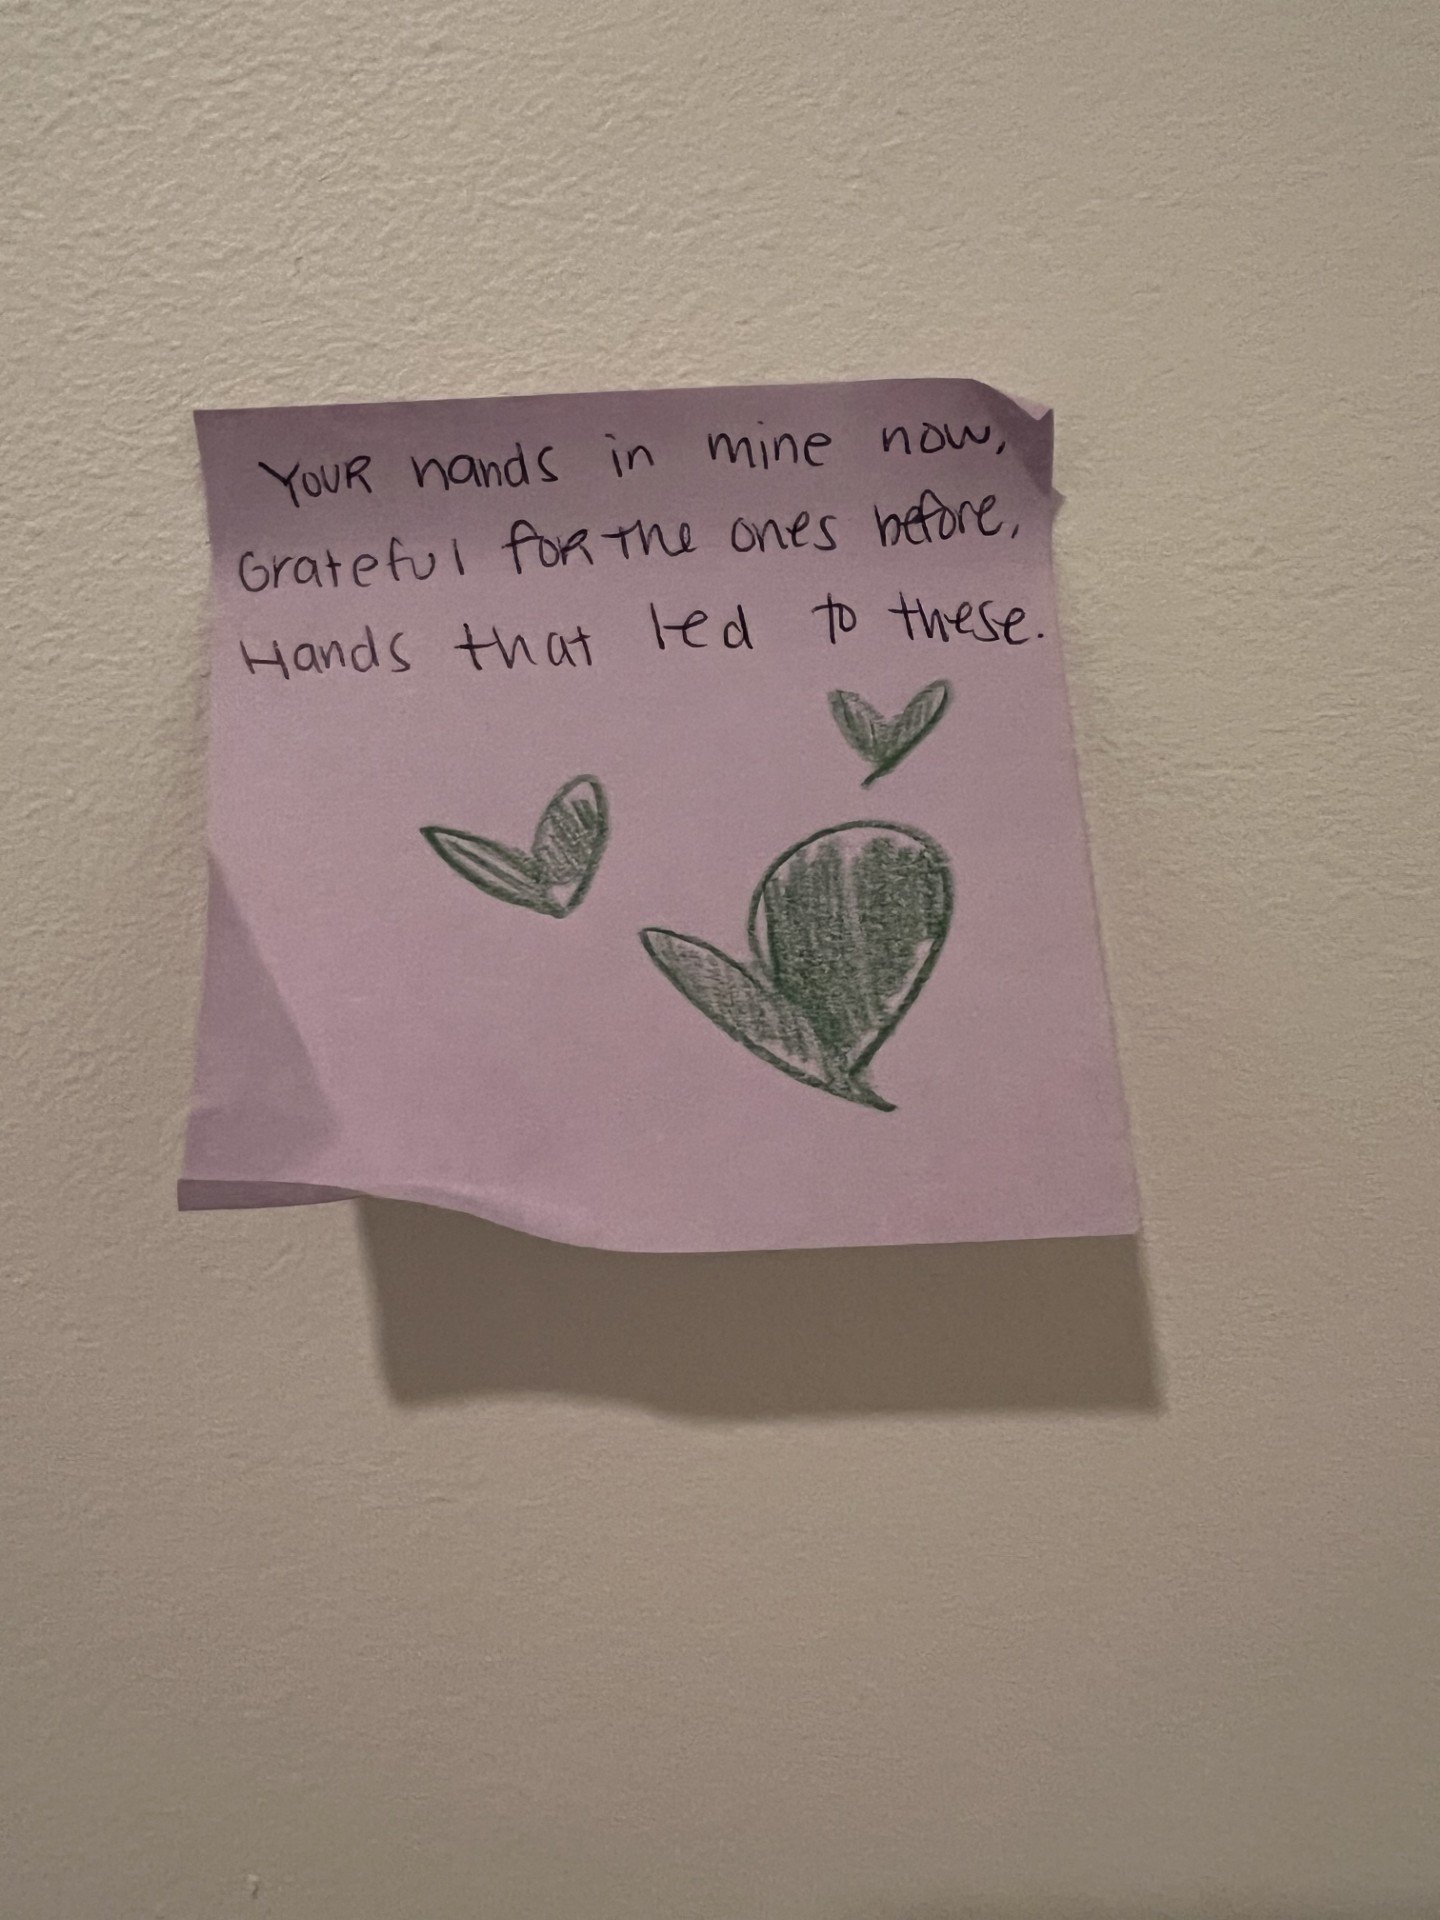 Your hands in mine now,
Grateful for the ones before,
Hands that led to these.